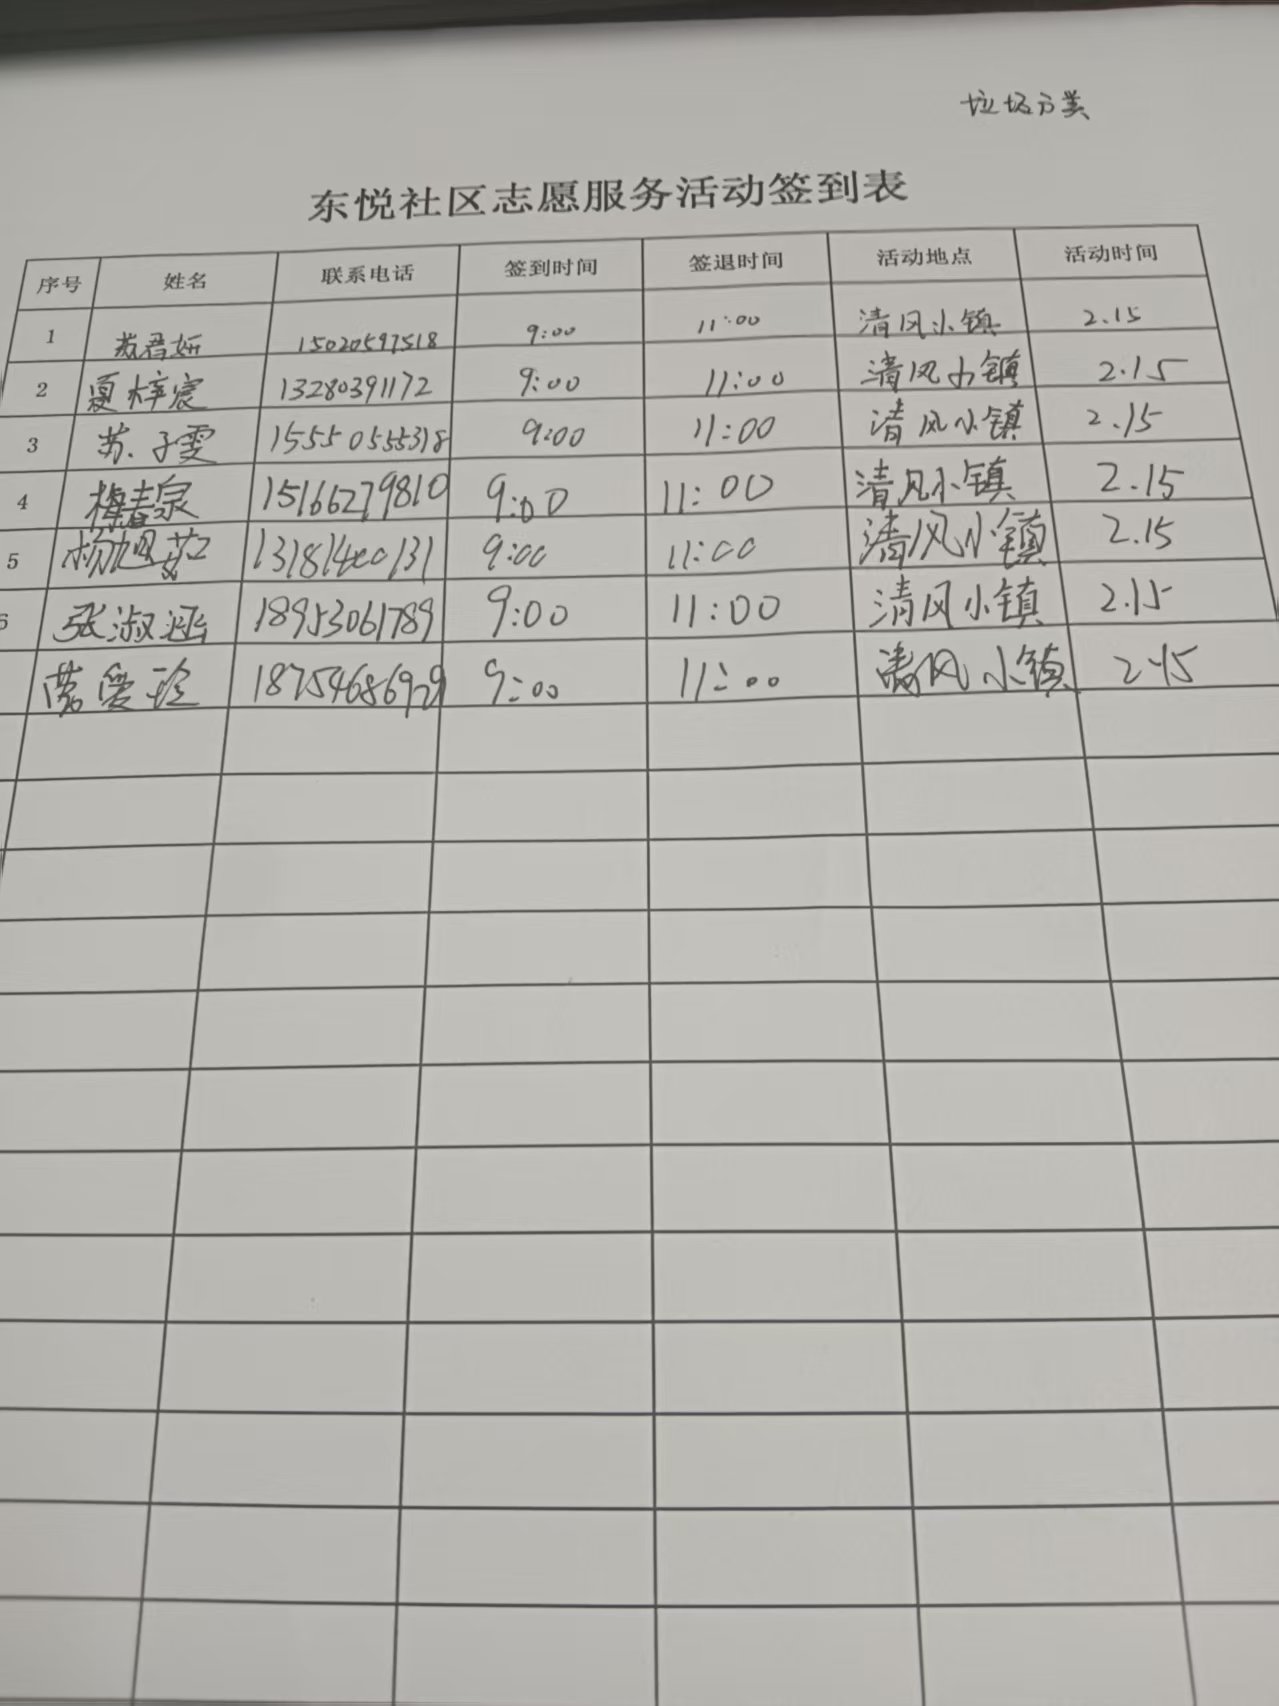 垃圾分类
东悦社区志愿服务活动签到表
序号 姓名 联系电话 签到时间 签退时间 活动地点 活动时间
1 君妍 15020597518 9:00 11:00 清风小镇 2.15
2 夏梓宸 13280391172 9:00 11:00 清风小镇 2.15
3 苏子雯 15550555318 9:00 11:00 清风小镇 2.15
4 梅春泉 15166279810 9:00 11:00 清风小镇 2.15
5 杨旭茹 13181400131 9:00 11:00 清风小镇 2.15
6 张淑涵 18953061789 9:00 11:00 清风小镇 2.15
爱珍 18754686929 9:00 11:00 清风小镇 2.15